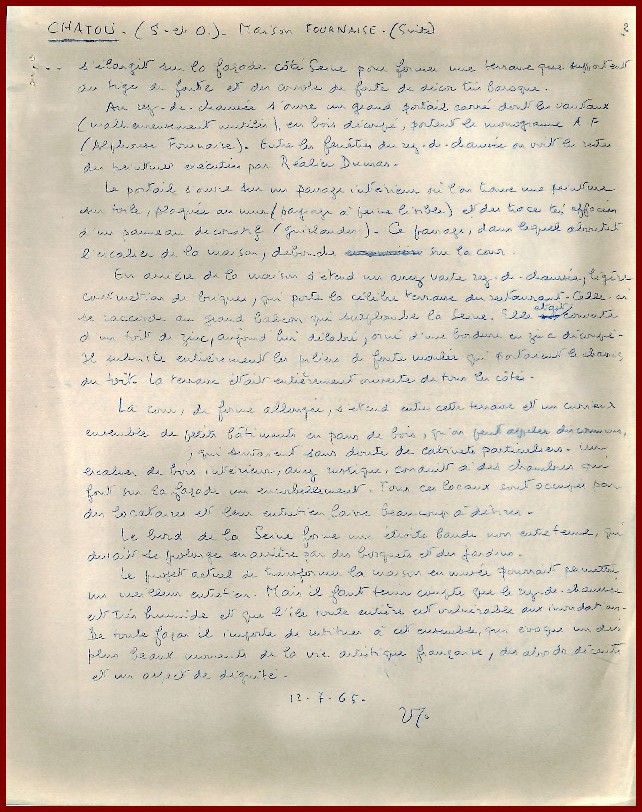 CHATOU. (S. et O.). Maison FOURNAISE. (Suite) 3
.... s'élargit sur la façade côté Seine pour former une terrasse que supportent
au tige de fonte et des consoles de fonte de décor très baroque.
Au rez-de-chaussée s'ouvre un grand portail carré dont les vantaux
(malheureusement mutilés), en bois découpé, portent le monogramme A F
(Alphonse Fournaise). Entre les fenêtres du rez-de-chaussée on voit les restes
des peintures exécutées par Réalier Dumas.
Le portail s'ouvre sur un passage intérieur où l'on trouve une peinture
sur toile, plaquée au mur (paysage à peine lisible) et des traces très effacées
d'un panneau décoratif (guirlandes). Ce passage, dans lequel aboutit
l'escalier de la maison, débouche sur la cour.
En arrière de la maison s'étend un assez vaste rez-de-chaussée, légère
construction de briques, qui porte la célèbre terrasse du restaurant. Celle-ci
se raccorde au grand balcon qui surplombe la Seine. Elle était couverte
d'un toit de zinc, aujourd'hui délabré, orné d'une bordure en zinc découpé.
Il subsiste entièrement les piliers de fonte moulée qui portaient le
du toit. La terrasse était entièrement ouverte de tous les côtés.
La cour, de forme allongée, s'étend entre cette terrasse et un curieux
ensemble de petits bâtiments en pans de bois, qu'on peut appeler
, qui servirent sans doute de cabinets particuliers. Un
escalier de bois intérieur, assez rustique, conduit à des chambres qui
font sur la façade un encorbellement. Tous ces locaux sont occupés par
des locataires et leur entretien laisse beaucoup à désirer.
Le bord de la Seine forme une étroite bande non entretenue, qui
devait se prolonger en arrière par des bosquets et des jardins.
Le projet actuel de transformer la maison en musée pourrait permettre
un meilleur entretien. Mais il faut tenir compte que le rez-de-chaussée
est très humide et que l'île toute entière est vulnérable aux inondations.
De toute façon il importe de restituer à cet ensemble, qui évoque un des
plus beaux moments de la vie artistique française, des abords décents
et un aspect de dignité.
12.7.65.